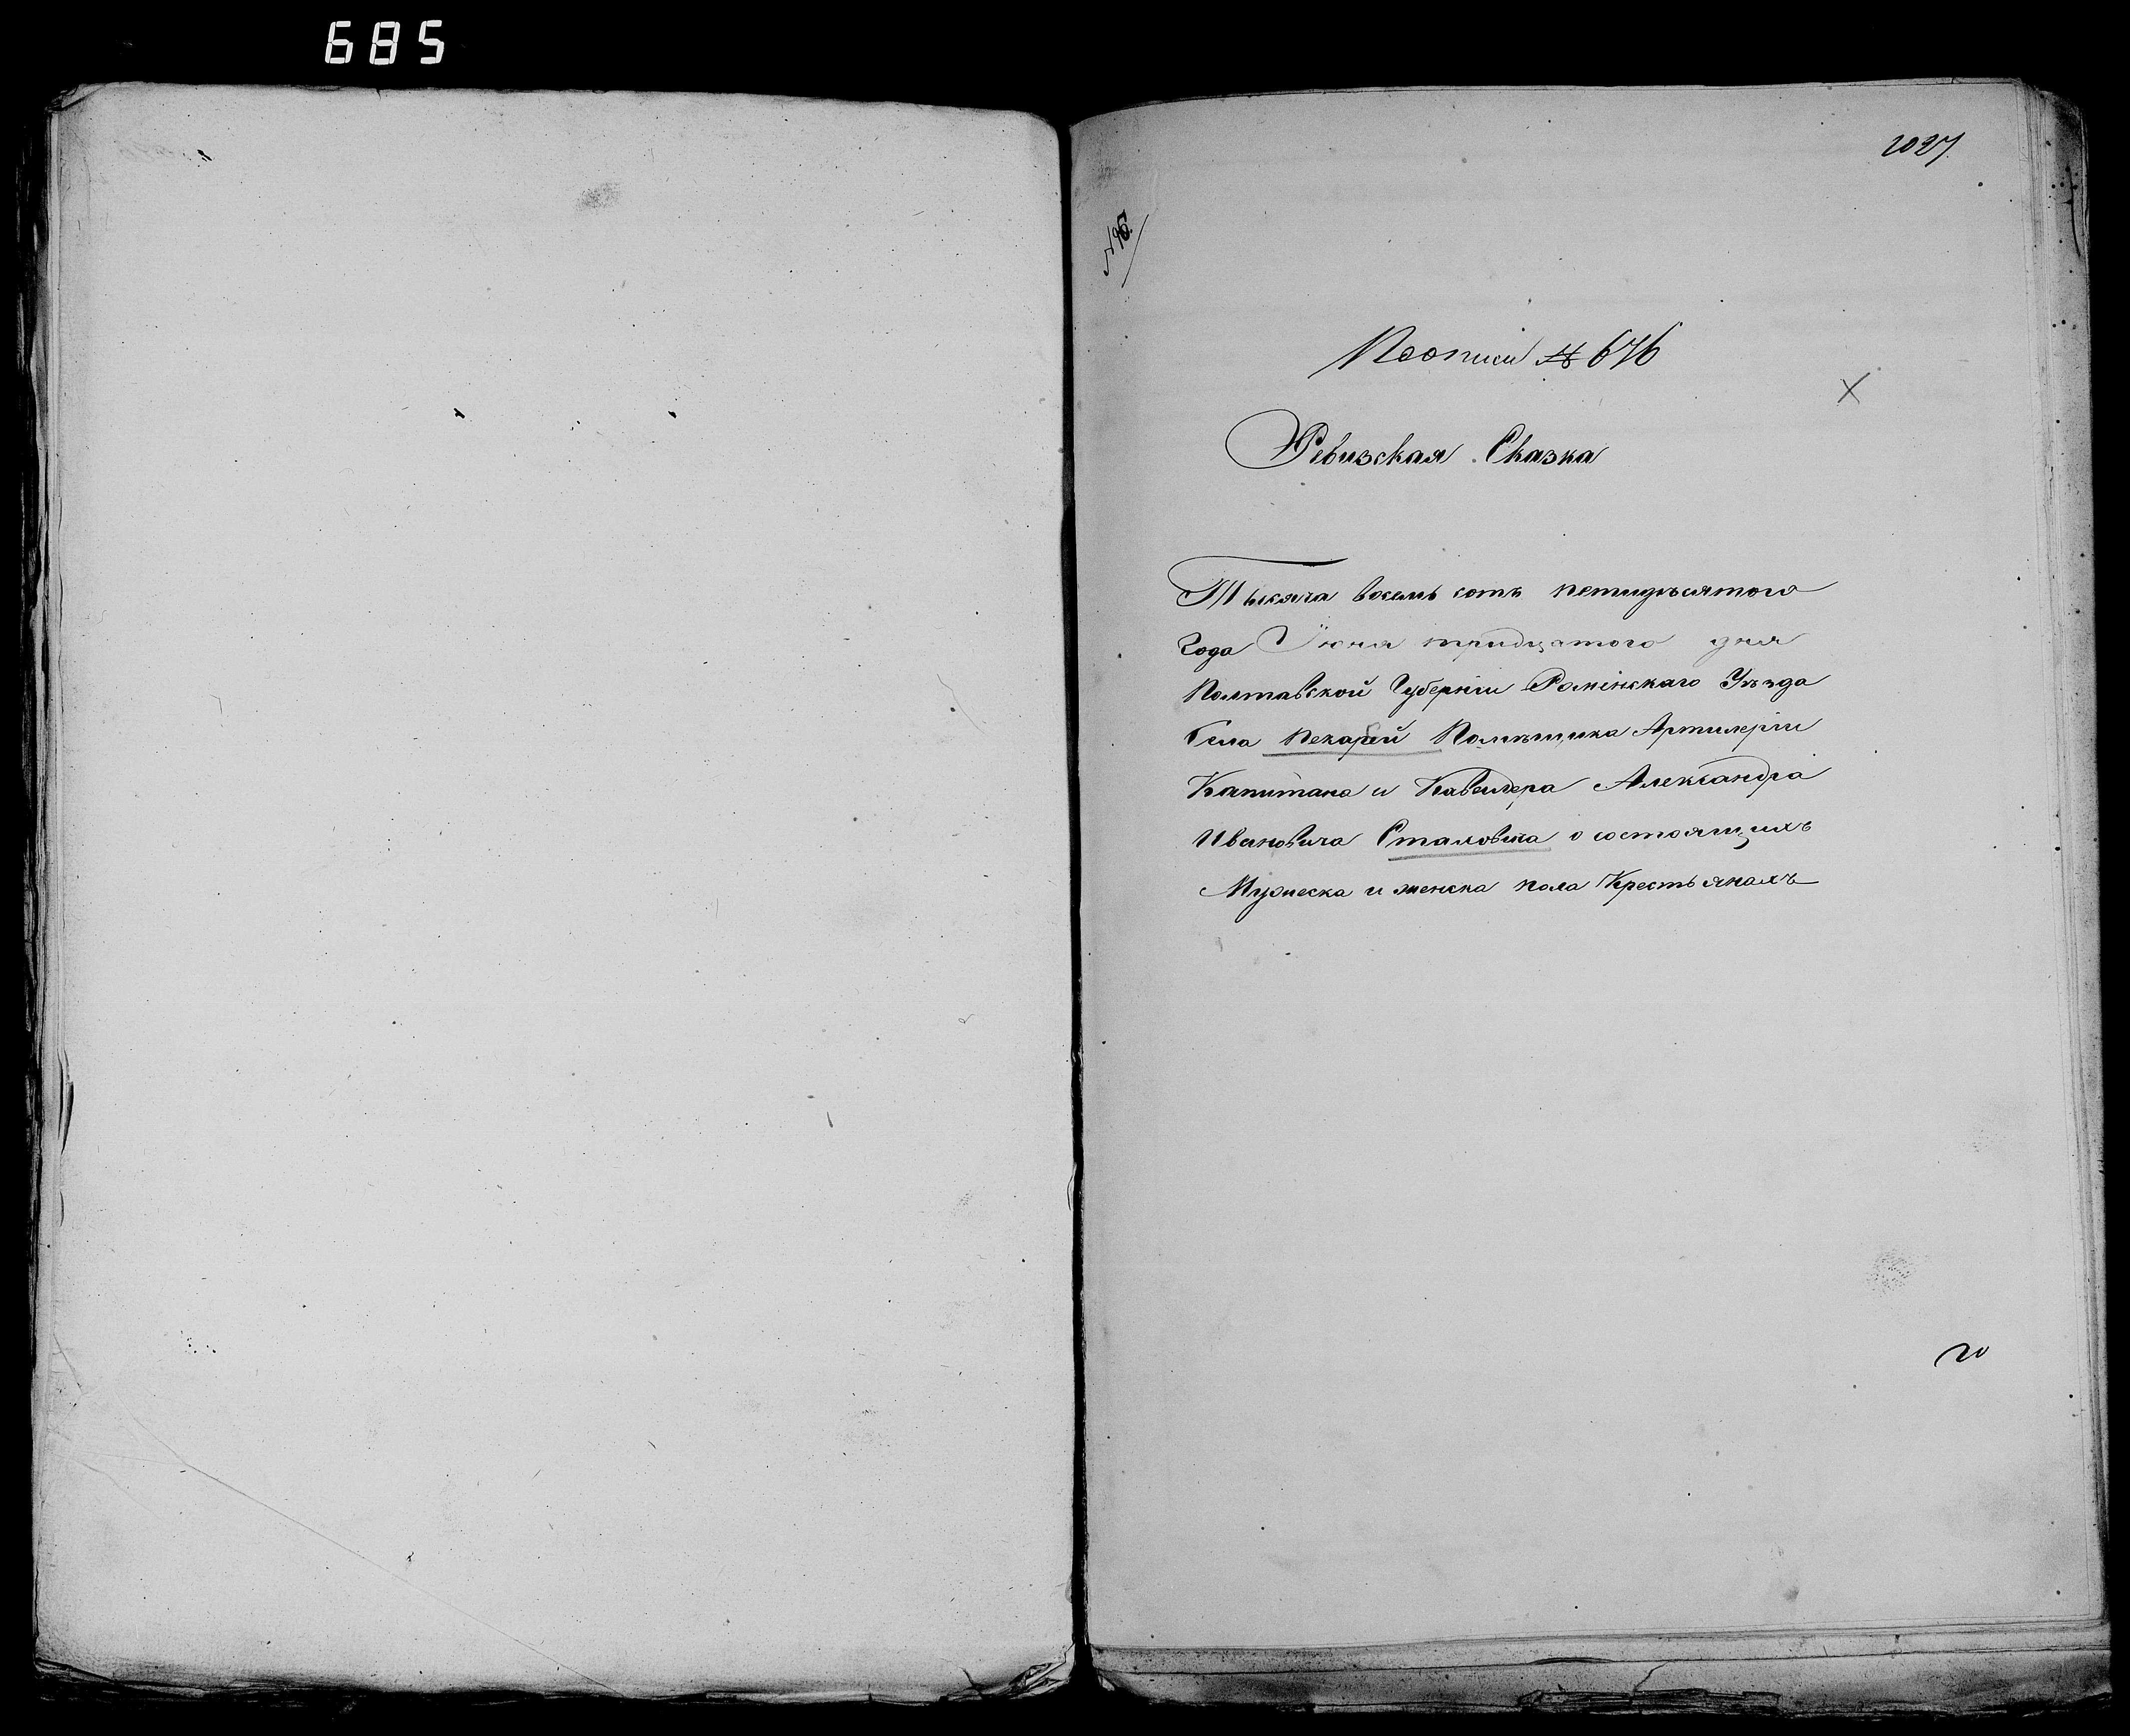 685
1027
По описи № 676
Ревизская Сказка
Тысяча восемь сотъ петидѣсятого
Года Июня тридцатого дня
Полтавской Губерніи Роминскаго Уѣзда
Села Пекарей Помѣщика Артилеріи
Капитана и Кавалера Александра
Ивановича Сталовика о состоящихъ
Мужеска и женска пола Крестьянахъ
20